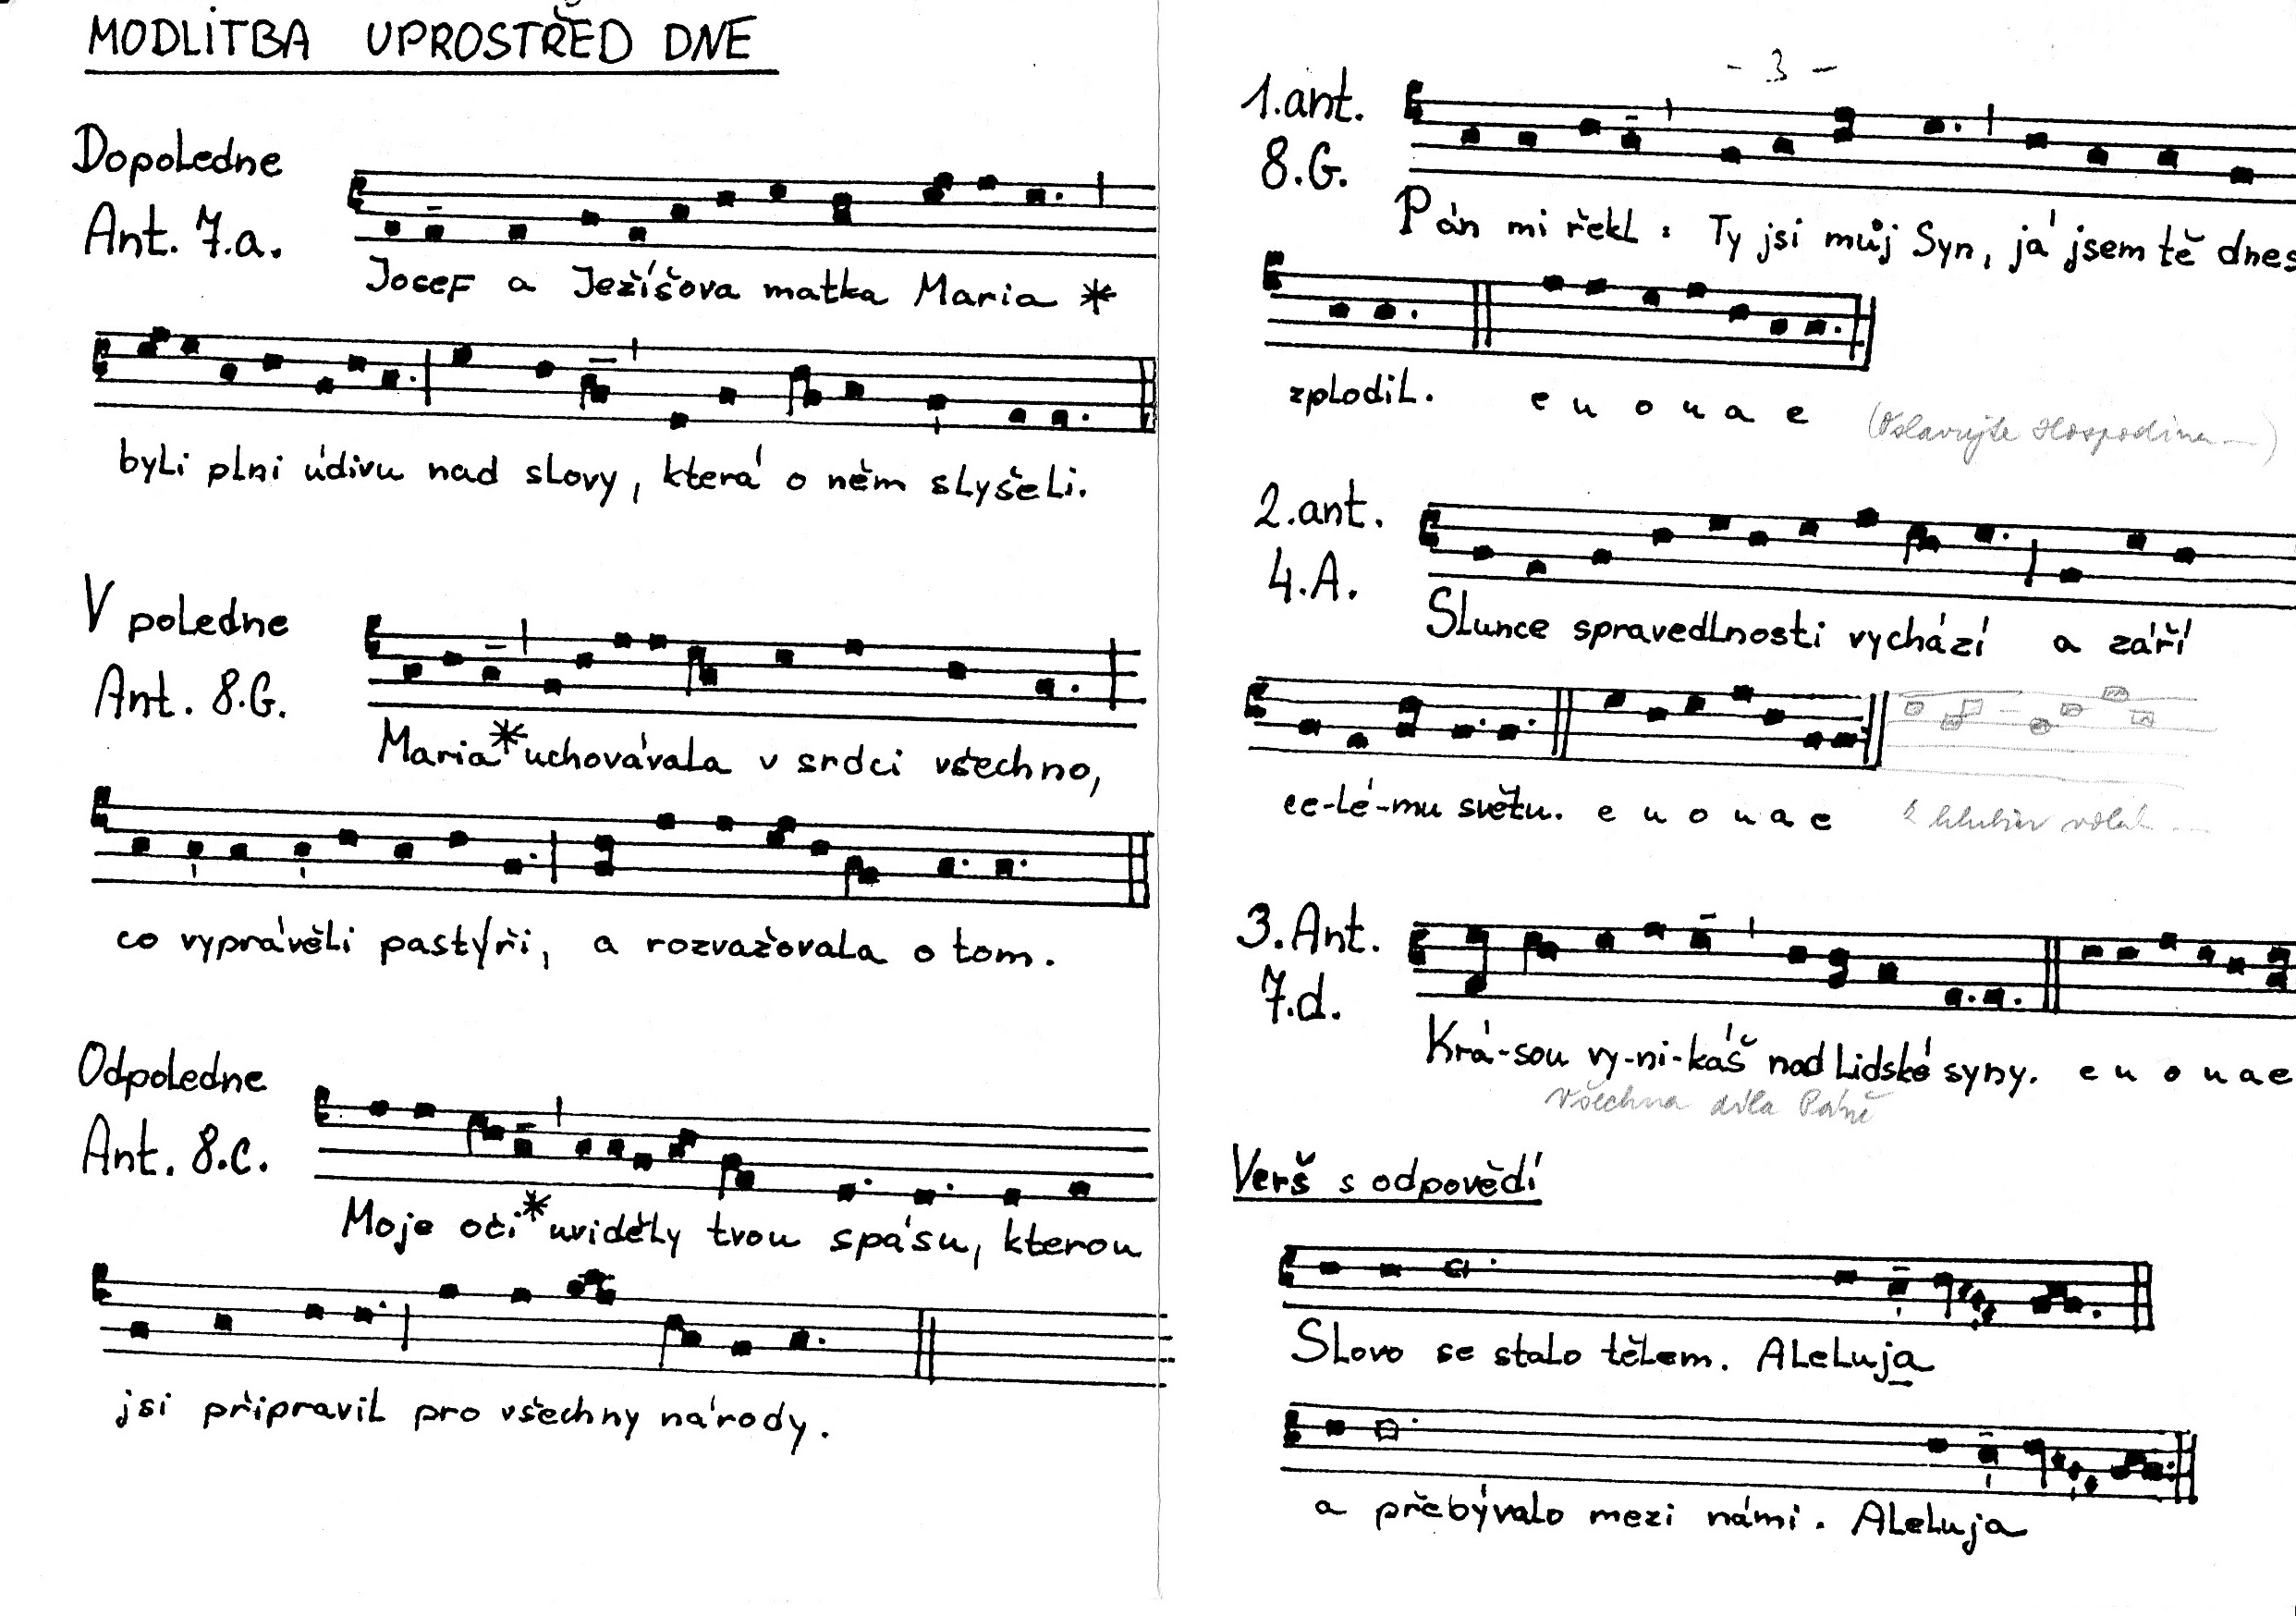 MODLITBA UPROSTŘED DNE
Dopoledne
Ant. 7.a.
Josef a Ježíšova matka Maria *
byli plni údivu nad slovy, která o něm slyšeli.
V poledne
Ant. 8.G.
Maria * uchovávala v srdci všechno,
co vyprávěli pastýři, a rozvažovala o tom.
Odpoledne
Ant. 8.c.
Moje oči * uviděly tvou spásu, kterou
jsi připravil pro všechny národy.
- 3 -
1.ant.
8.G.
Pán mi řekl: Ty jsi můj Syn, já jsem tě dnes
zplodil. e u o u a e (Oslavujte Hospodina...)
2.ant.
4.A.
Slunce spravedlnosti vychází a září
ce-lé-mu světu. e u o u a e
3.Ant.
7.d.
Krá-sou vy-ni-káš nad lidské syny. e u o u a e
Všechna díla Páně
Verš s odpovědí
Slovo se stalo tělem. Aleluja
a přebývalo mezi námi. Aleluja